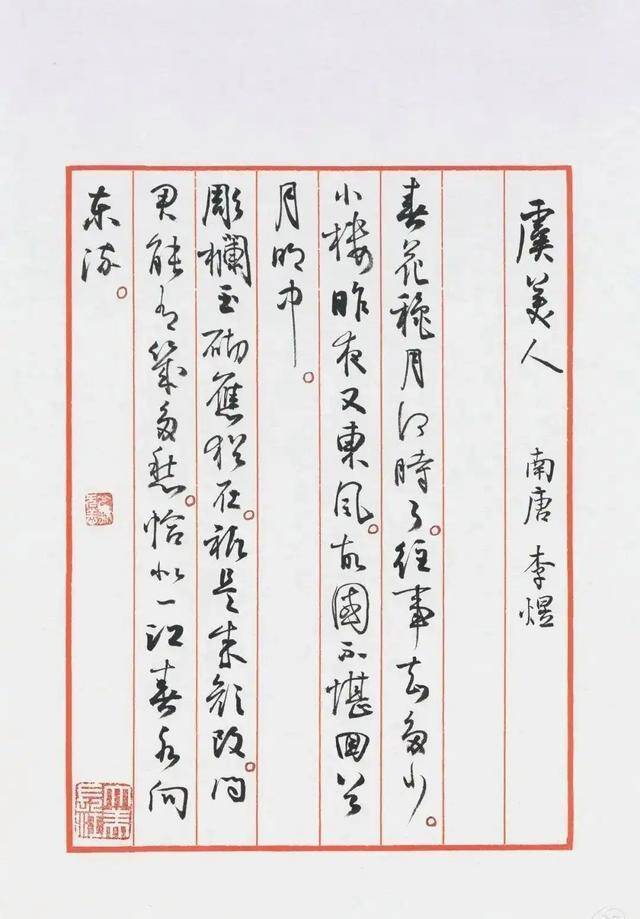 虞美人 南唐 李煜
春花穐月何時了。往事知多少。
小樓昨夜又東風。故國不堪回首
月明中。
彫欄玉砌應猶在。祗是朱顏改。問
君能有幾多愁。恰似一江春水向
東流。